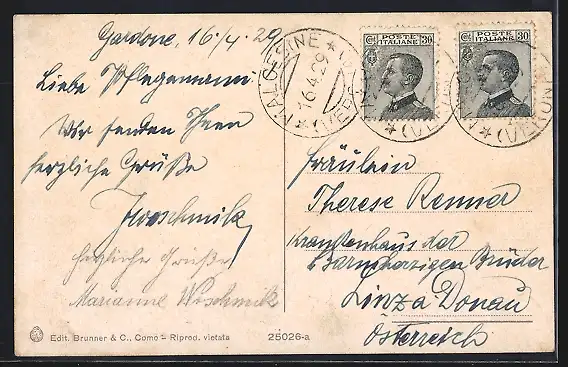 Gardone, 16/4.29
Liebe Pflegemam
Wir senden Ihnen
herzliche Grüße
herzlicher Grüße
Marianne Wischmik
MALCESINE
16.4.29
(VERONA)
POSTE ITALIANE 30
POSTE ITALIANE 30
Fräulein
Therese Renner
Krankenhaus der
Barmherzigen Brüder
Linz a Donau
Österreich
Edit. Brunner & C., Como – Riprod. vietata
25026-a